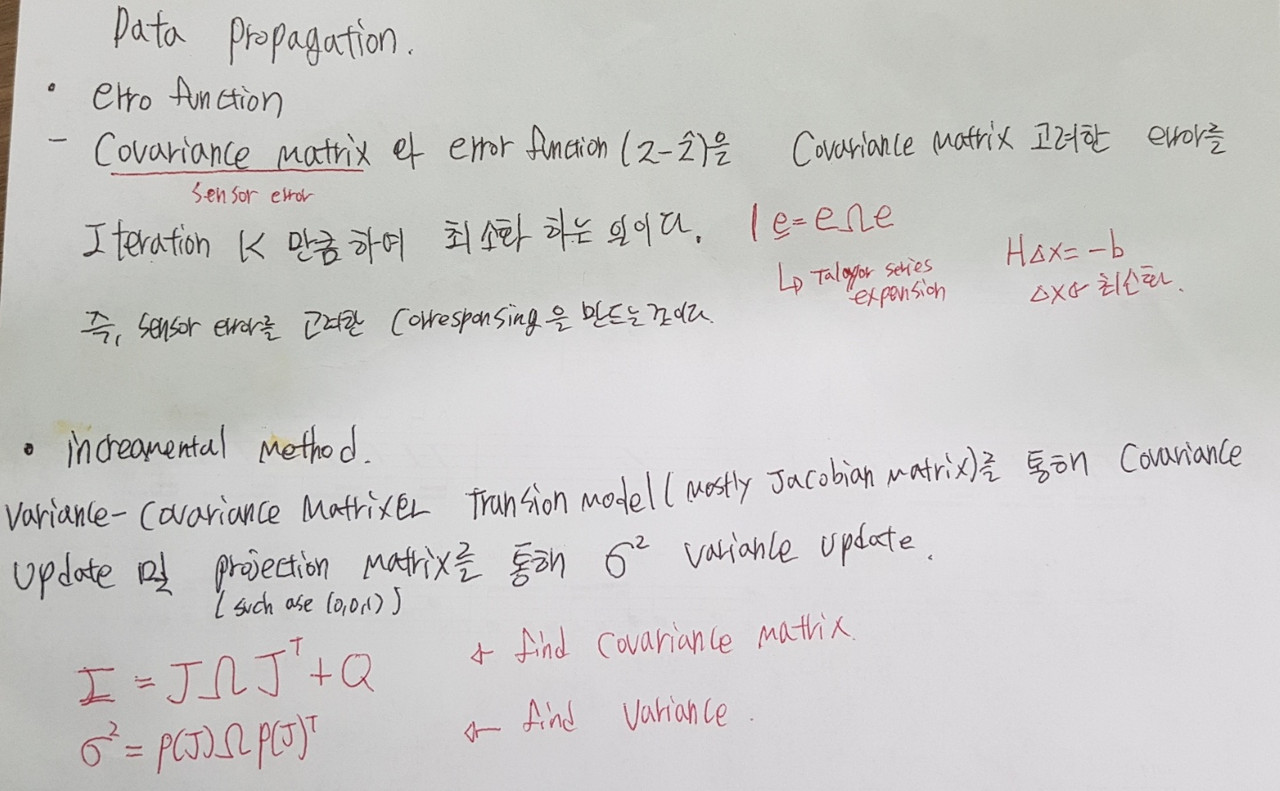 Data propagation.
• erro function
- Covariance matrix 와 error function (z-ẑ)을 Covariance matrix 고려한 error를
sensor error
Iteration K 만큼 하여 최소화 하는 일이다.
e=eΩe
↳ Talayor series
expension
HΔx=-b
Δx ← 최소화.
즉, sensor error를 고려한 Corresponsing을 만드는것이다.
• increamental method.
Variance-Covariance Matrix와 Transion model (mostly Jacobian matrix)를 통해 Covariance
Update 및 projection matrix를 통해 σ² variance update.
(such ase (0,0,1))
Σ = JΩJᵀ+Q ← find covariance matrix.
σ² = P(J)ΩP(J)ᵀ ← find variance.